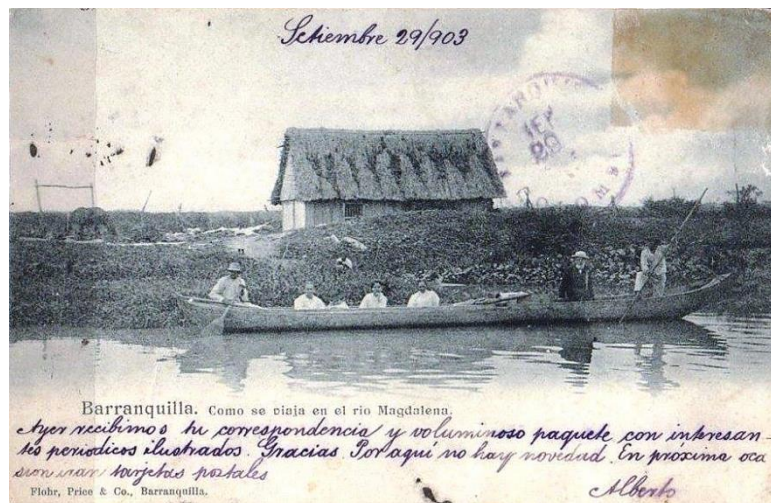 Setiembre 29/903
BARRANQUI
SEP
29
Barranquilla. Como se viaja en el rio Magdalena.
Ayer recibimos tu correspondencia y voluminoso paquete con interesan-
tes periodicos ilustrados. Gracias. Por aquí no hay novedad. En próxima oca
sion iran tarjetas postales
Alberto
Flohr, Price & Co., Barranquilla.